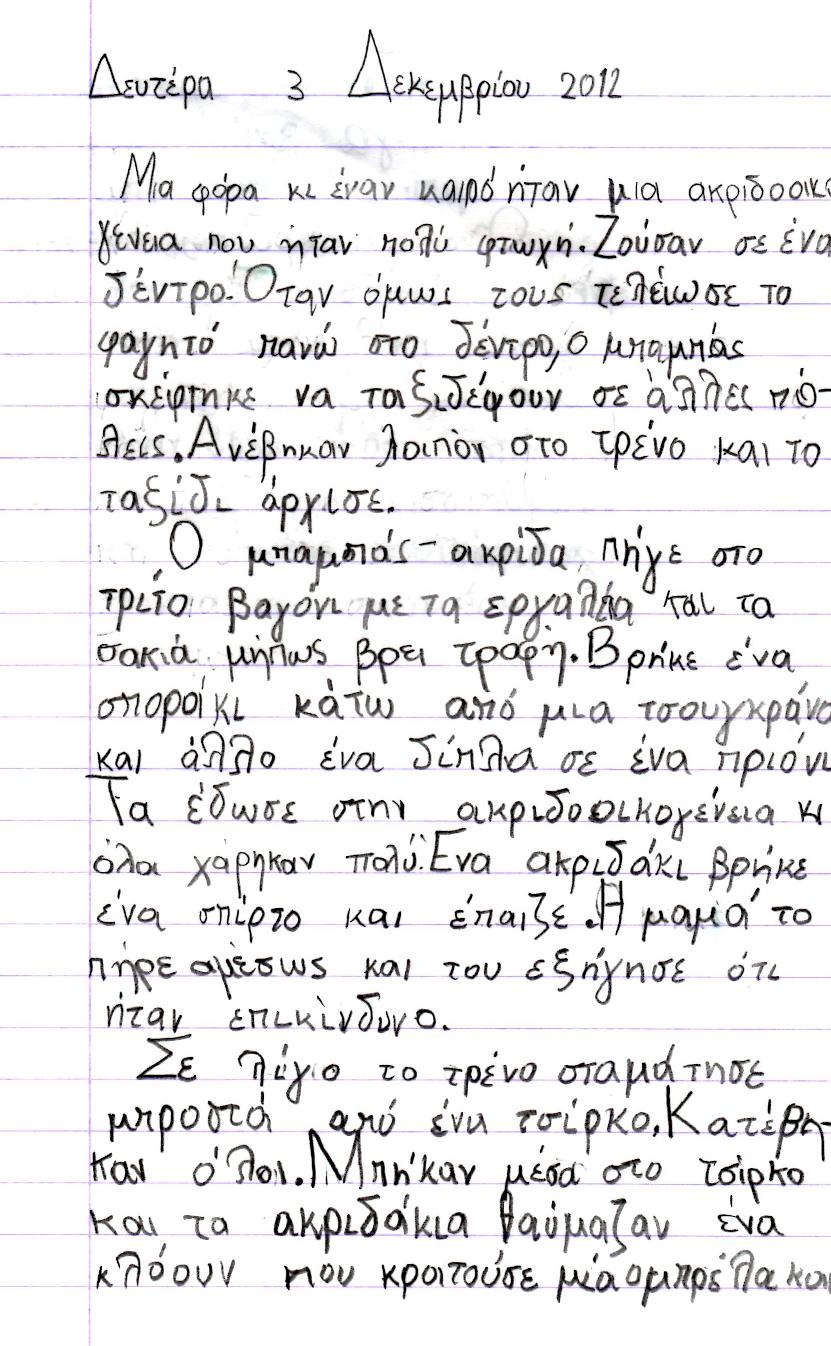 Δευτέρα 3 Δεκεμβρίου 2012
Μια φόρα κι έναν καιρό ήταν μια ακριδοοικο
γένεια που ήταν πολύ φτωχή. Ζούσαν σε ένα
δέντρο. Όταν όμως τους τελείωσε το
φαγητό πανώ στο δέντρο, ο μπαμπάς
σκέφτηκε να ταξιδέψουν σε άλλες πό-
λεις. Ανέβηκαν λοιπόν στο τρένο και το
ταξίδι άρχισε.
Ο μπαμπάς-ακρίδα πήγε στο
τρίτο βαγόνι με τα εργαλεία και τα
σακιά μήπως βρει τροφή. Βρήκε ένα
σποράκι κάτω από μια τσουγκράνα
και άλλο ένα δίπλα σε ένα πριόνι
Τα έδωσε στην ακριδοοικογένεια κι
όλοι χάρηκαν πολύ. Ένα ακριδάκι βρήκε
ένα σπίρτο και έπαιζε. Η μαμά το
πήρε αμέσως και του εξήγησε ότι
ήταν επικίνδυνο.
Σε λίγο το τρένο σταμάτησε
μπροστά από ένα τσίρκο. Κατέβη-
καν όλοι. Μπήκαν μέσα στο τσίρκο
και τα ακριδάκια θαύμαζαν ένα
κλόουν που κρατούσε μία ομπρέλα και